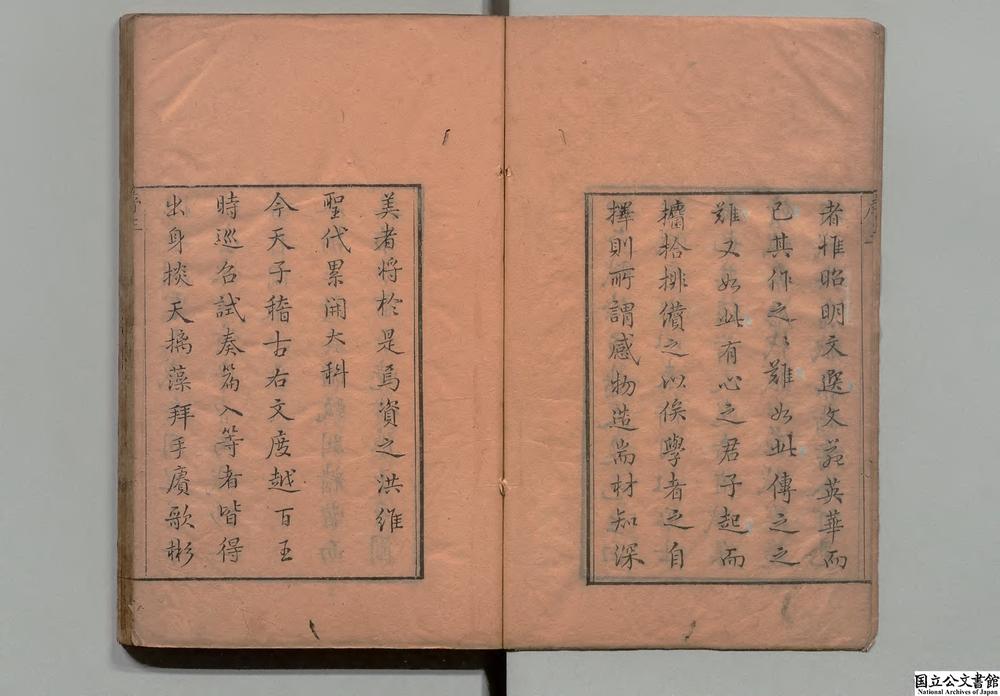 者惟昭明文選文苑英華而
已其作之之難如此傳之之
難又如此有心之君子起而
攟拾排纘之以俟學者之自
擇則所謂感物造耑材知深
美者將於是焉資之洪維
聖代累開大科
今天子稽古右文度越百王
時巡召試奏篇入等者皆得
出身掞天摛藻拜手賡歌彬
国立公文書館
National Archives of Japan